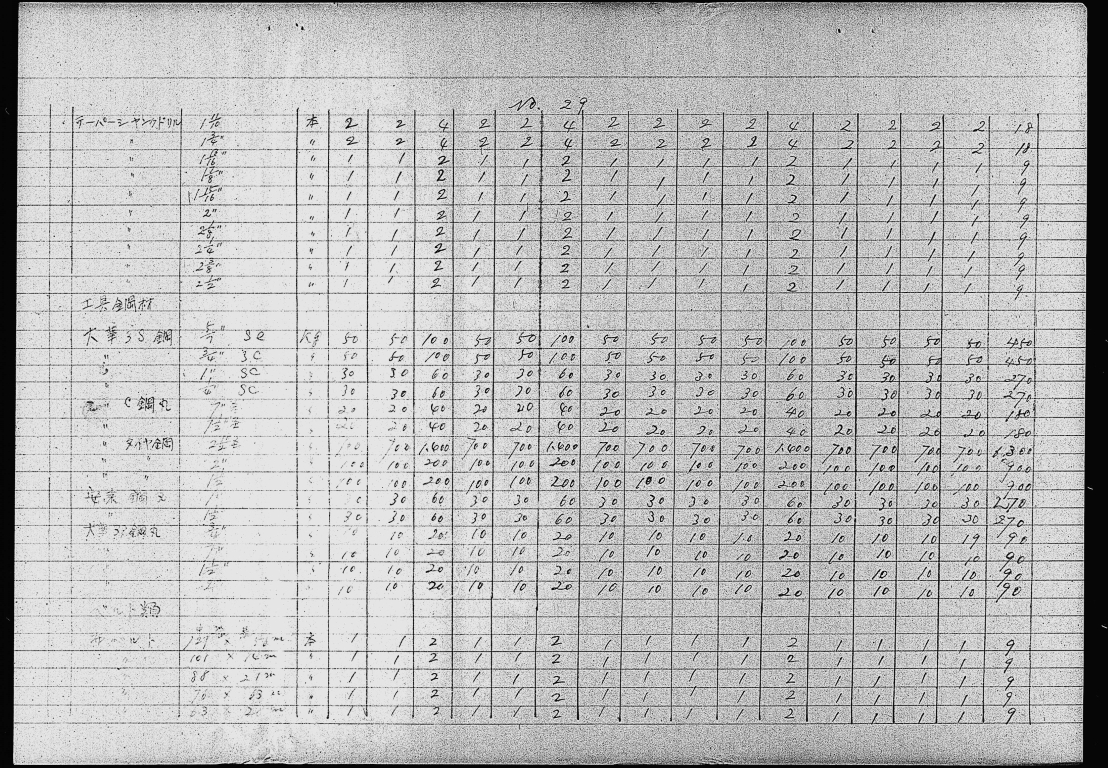 No. 29
テーパーシャンクドリル 本 2 2 4 2 2 4 2 2 2 2 4 2 2 2 2 18
〃 1 3/4" 〃 2 2 4 2 2 4 2 2 2 2 4 2 2 2 2 18
〃 〃 1 1 2 1 1 2 1 1 1 1 2 1 1 1 1 9
〃 〃 1 1 2 1 1 2 1 1 1 1 2 1 1 1 1 9
〃 1 15/16" 〃 1 1 2 1 1 2 1 1 1 1 2 1 1 1 1 9
〃 2" 〃 1 1 2 1 1 2 1 1 1 1 2 1 1 1 1 9
〃 2 1/8" 〃 1 1 2 1 1 2 1 1 1 1 2 1 1 1 1 9
〃 2 1/4" 〃 1 1 2 1 1 2 1 1 1 1 2 1 1 1 1 9
〃 2 3/8" 〃 1 1 2 1 1 2 1 1 1 1 2 1 1 1 1 9
〃 2 1/2" 〃 1 1 2 1 1 2 1 1 1 1 2 1 1 1 1 9
工具鋼材
大華3S鋼 50 50 100 50 50 100 50 50 50 50 100 50 50 50 50 450
〃 3/4" SC 〃 50 50 100 50 50 100 50 50 50 50 100 50 50 50 50 450
〃 1" SC 〃 30 30 60 30 30 60 30 30 30 30 60 30 30 30 30 270
SC 〃 30 30 60 30 30 60 30 30 30 30 60 30 30 30 30 270
C鋼丸 〃 20 20 40 20 20 40 20 20 20 20 40 20 20 20 20 180
〃 〃 20 20 40 20 20 40 20 20 20 20 40 20 20 20 20 180
〃 ダイヤ鋼 〃 700 700 1,400 700 700 1,400 700 700 700 700 1,400 700 700 700 700 6,300
〃 〃 2" 〃 100 100 200 100 100 200 100 100 100 100 200 100 100 100 100 900
〃 〃 100 100 200 100 100 200 100 100 100 100 200 100 100 100 100 900
鋼丸 〃 30 60 30 30 60 30 30 30 30 60 30 30 30 30 270
〃 〃 30 30 60 30 30 60 30 30 30 30 60 30 30 30 30 270
大華3S鋼丸 〃 10 20 10 10 20 10 10 10 10 20 10 10 10 90
〃 〃 10 10 20 10 10 20 10 10 10 10 20 10 10 10 10 90
〃 〃 10 10 20 10 10 20 10 10 10 10 20 10 10 10 10 90
〃 10 10 20 10 10 20 10 10 10 10 20 10 10 10 10 90
ベルト類
ベルト 本 1 1 2 1 1 2 1 1 1 1 2 1 1 1 1 9
101 × 〃 1 1 2 1 1 2 1 1 1 1 2 1 1 1 1 9
88 × 21 〃 1 1 2 1 1 2 1 1 1 1 2 1 1 1 1 9
76 × 63 〃 1 1 2 1 1 2 1 1 1 1 2 1 1 1 1 9
63 × 〃 1 1 2 1 1 2 1 1 1 1 2 1 1 1 1 9